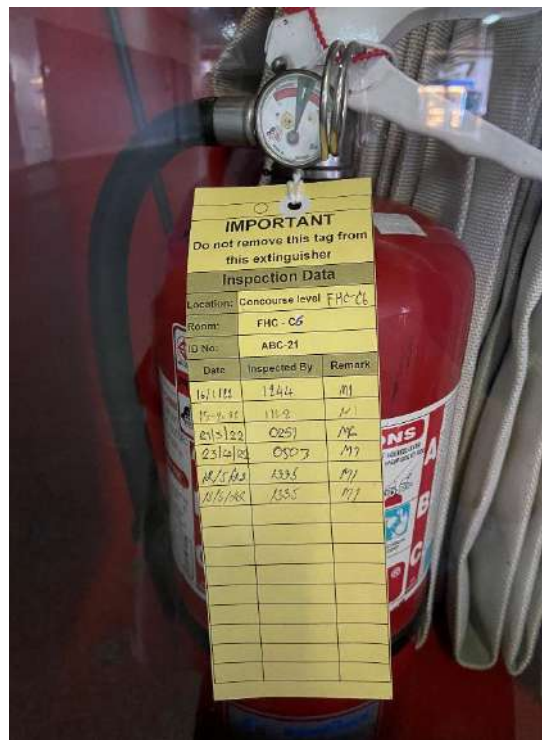 IMPORTANT
Do not remove this tag from
this extinguisher
Inspection Data
Location: Concourse level FHC-C6
Room: FHC - C6
ID No: ABC-21
Date Inspected By Remark
16/1/22 1244 M1
1112
21/3/22 0251
0503 M1
1335 M1
1335 M1
NS
A
B
C